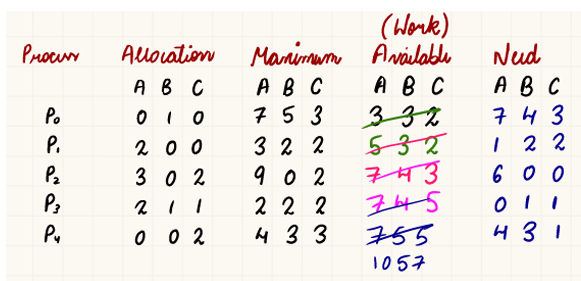 (Work)
Process Allocation Maximum Available Need
A B C A B C A B C A B C
P0 0 1 0 7 5 3 3 3 2 7 4 3
P1 2 0 0 3 2 2 5 3 2 1 2 2
P2 3 0 2 9 0 2 7 4 3 6 0 0
P3 2 1 1 2 2 2 7 4 5 0 1 1
P4 0 0 2 4 3 3 7 5 5 4 3 1
10 5 7